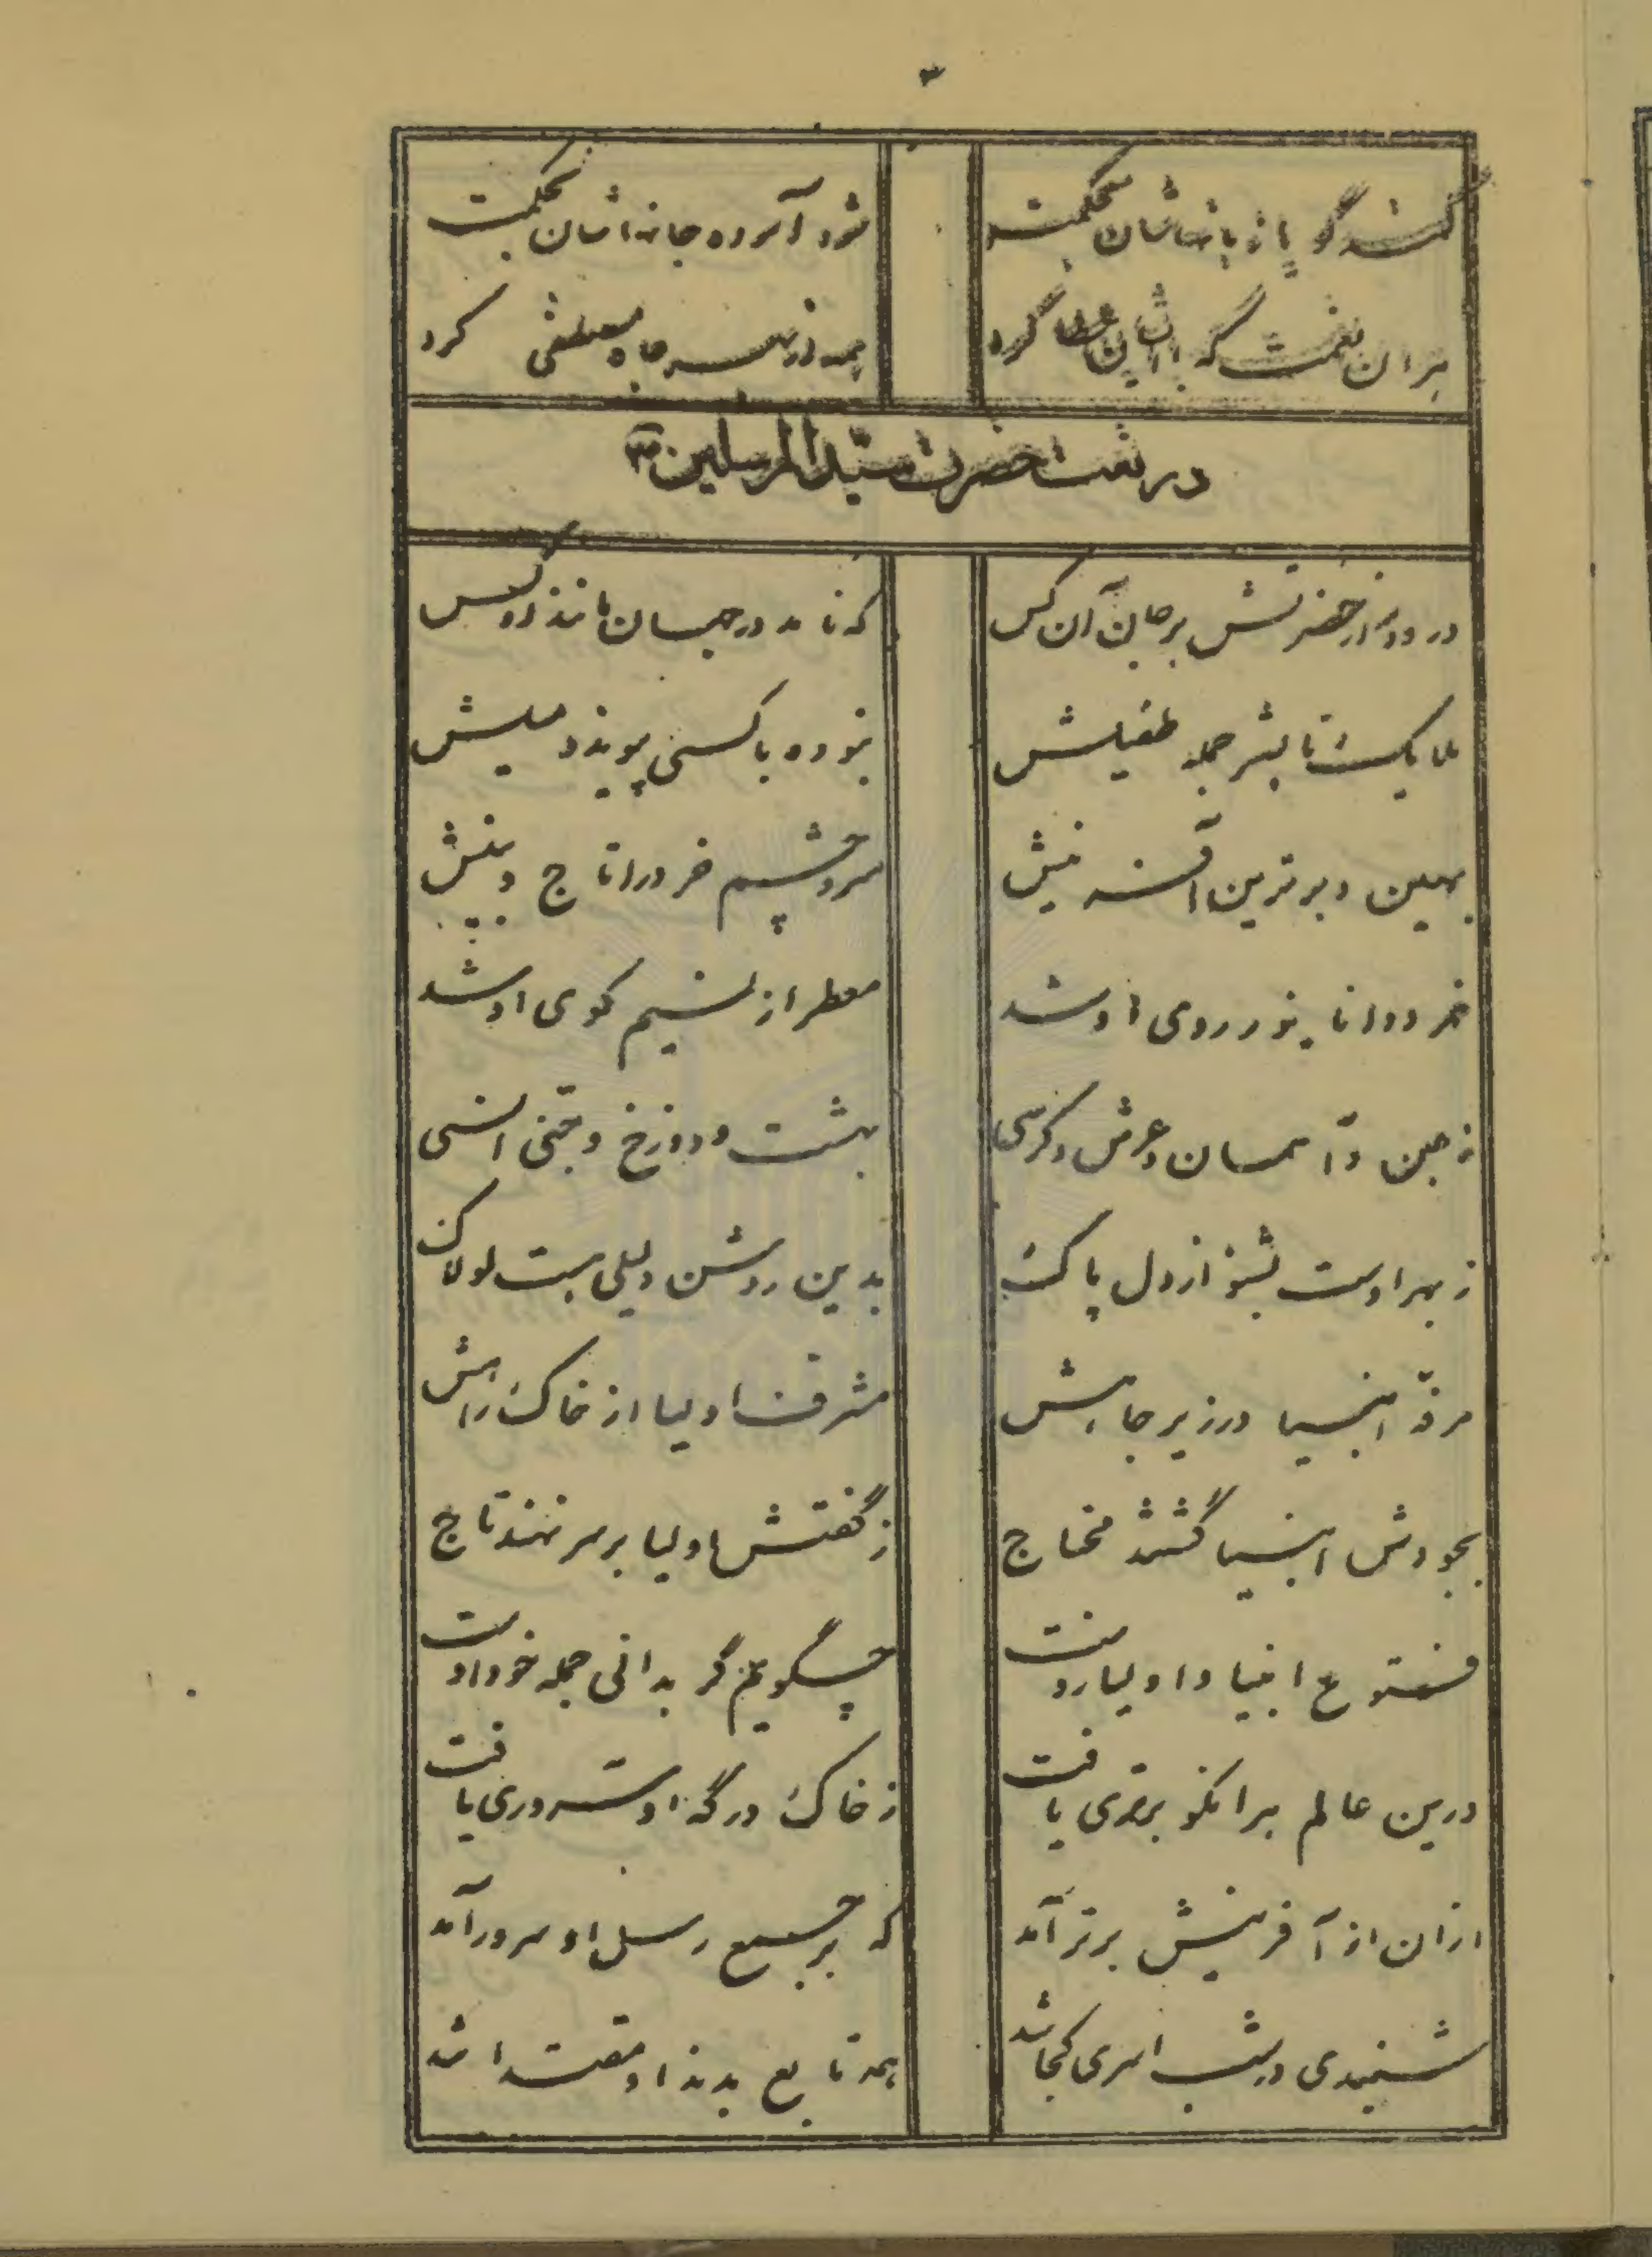 ۳
کند گویا زبانهاشان بحکمت شود آسوده جانهاشان بحکمت
هر آن نعمت که با ایشان عطا کرد همه از بهر جاه مصطفی کرد
در نعت حضرت سیّد المرسلین ص
درود از حضرتش بر جان آن کس که نامد در جهان مانند او کس
ملایک تا بشر جمله طفیلش نبوده با کسی پیوند و میلش
بهین و برترین آفرینش سر و چشم خرد را تاج و بینش
خرد دانا بنور روی او شد معطر از نسیم کوی او شد
زمین و آسمان و عرش و کرسی بهشت و دوزخ و جنی انسی
ز بهر اوست بشنو از دل پاک بدین روشن دلیلی هست لولاک
مرفّه انبیا در زیر جاهش مشرف اولیا از خاک راهش
بجودش انبیا گشتند محتاج ز گفتش اولیا بر سر نهند تاج
فتوع انبیا و اولیا روست چگویم گر بدانی جمله خود اوست
درین عالم هرانکو برتری یافت ز خاک درگه او سروری یافت
ازان از آفرینش برتر آمد که بر جمیع رسل او سرور آمد
شنیدی در شب اسری کجا شد همه تابع بدند او مقتدا شد